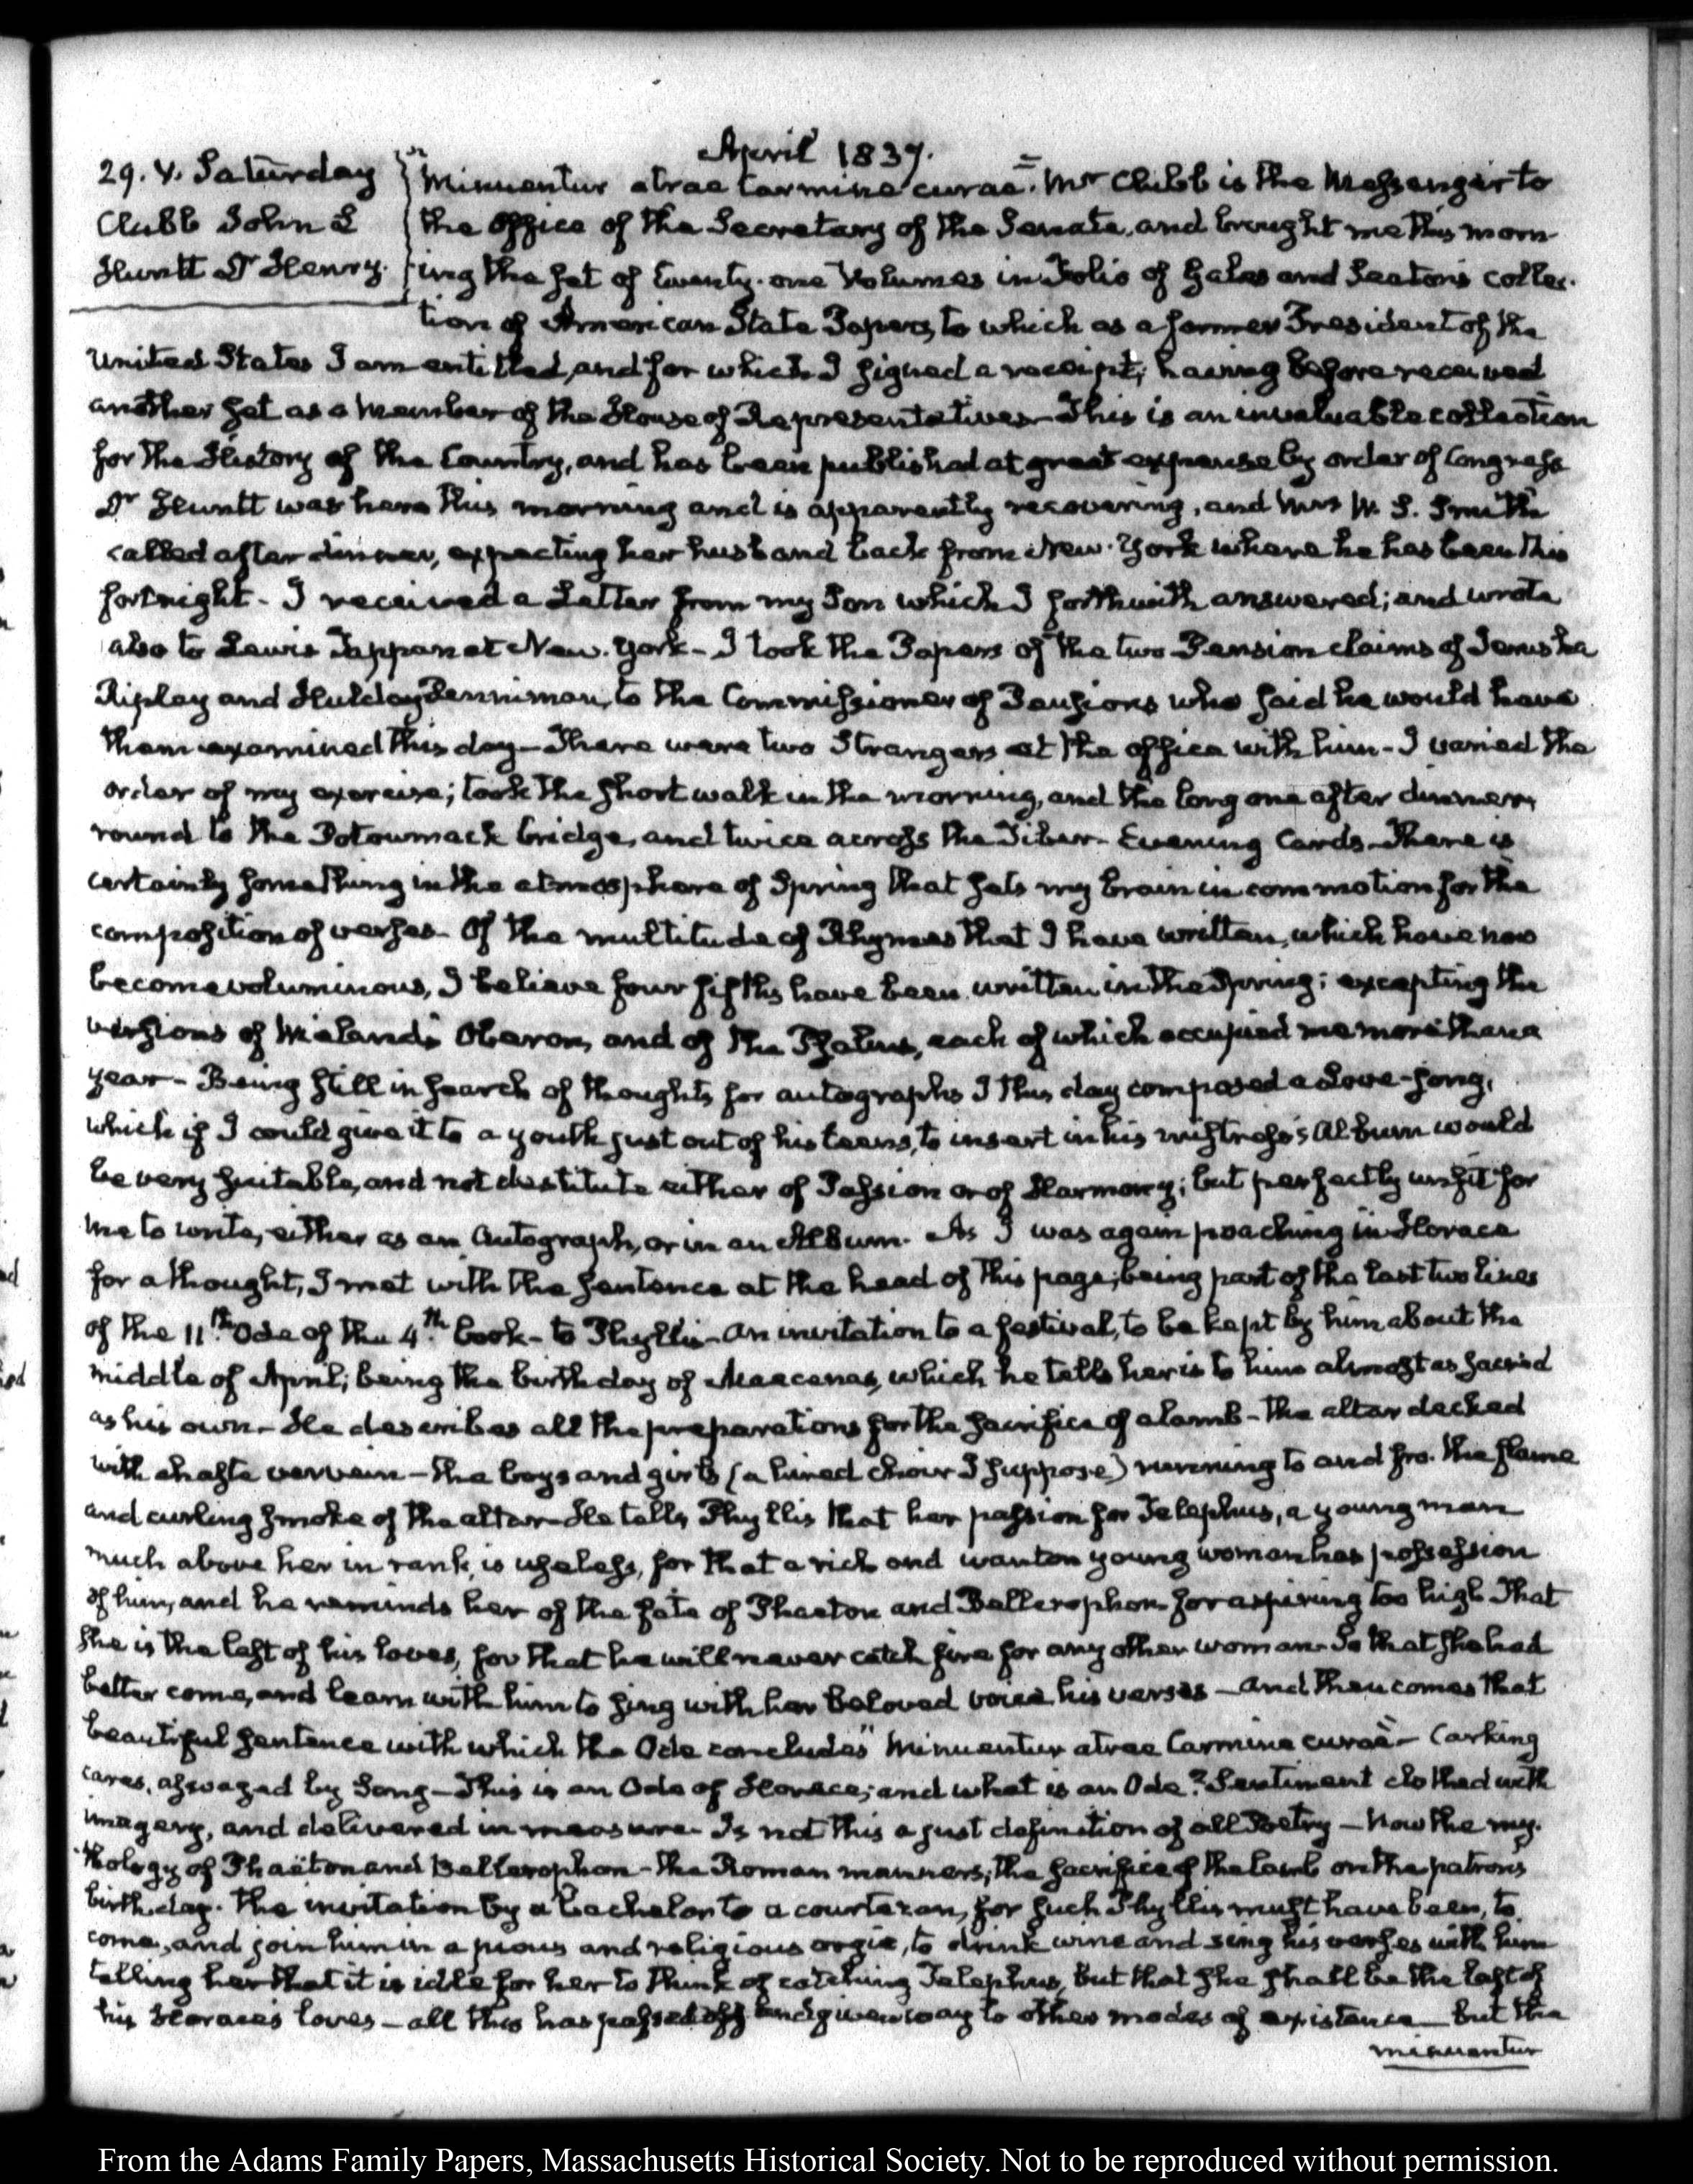 April 1837.
29. V. Saturday
Clubb John L
Huntt Dr Henry.
Minuentur atrae Carmine curae." Mr Clubb is the Messenger to
the office of the Secretary of the Senate, and brought me this morn-
ing the set of twenty-one Volumes in Folio of Gales and Seaton's collec-
tion of American State Papers, to which as a former President of the
United States I am entitled, and for which I signed a receipt; having before received
another set as a Member of the House of Representatives— This is an invaluable collection
for the History of the Country, and has been published at great expense by order of Congress
Dr Huntt was here this morning and is apparently recovering, and Mrs W. S. Smith
called after dinner, expecting her husband back from New-York where he has been this
fortnight— I received a Letter from my Son which I forthwith answered; and wrote
also to Lewis Tappan at New-York— I took the Papers of the two Pension claims of Jerusha
Ripley and Hulday Penniman, to the Commissioner of Pensions who said he would have
them examined this day— There were two Strangers at the office with him— I varied the
order of my exercise; took the short walk in the morning, and the long one after dinner,
round to the Potowmack bridge, and twice across the Tiber— Evening Cards— There is
certainly something in the atmosphere of Spring that sets my brain in commotion for the
composition of verses— Of the multitude of Rhymes that I have written, which have now
become voluminous, I believe four fifths have been written in the Spring; excepting the
versions of Wieland's Oberon, and of the Psalms, each of which occupied me more than a
year— Being still in search of thoughts for autographs I this day composed a Love-song,
which if I could give it to a youth just out of his teens, to insert in his mistress's Album would
be very suitable, and not destitute either of Passion or of Harmony; but perfectly unfit for
me to write, either as an Autograph, or in an Album. As I was again poaching in Horace
for a thought, I met with the sentence at the head of this page; being part of the last two lines
of the 11th Ode of the 4th book— to Phyllis— An invitation to a festival, to be kept by him about the
middle of April; being the birthday of Maecenas, which he tells her is to him almost as sacred
as his own— He describes all the preparations for the sacrifice of a lamb— the altar decked
with chaste vervain— the boys and girls (a hired choir I suppose) running to and fro. the flame
and curling smoke of the altar— He tells Phyllis that her passion for Telephus, a young man
much above her in rank, is useless, for that a rich and wanton young woman has possession
of him, and he reminds her of the fate of Phaeton and Bellerophon for aspiring too high That
she is the last of his loves, for that he will never catch fire for any other woman— So that she had
better come, and learn with him to sing with her beloved voice his verses— and then comes that
beautiful sentence with which the Ode concludes "Minuentur atrae Carmine curae"— Carking
cares, assuaged by Song— This is an Ode of Horace; and what is an Ode? Sentiment clothed with
imagery, and delivered in measure— Is not this a just definition of all Poetry— Now the my-
thology of Phaëton and Bellerophon— the Roman manners; the sacrifice of the lamb on the patron's
birth-day. the invitation by a bachelor to a courtezan, for such Phyllis must have been, to
come, and join him in a pious and religious orgie, to drink wine and sing his verses with him
telling her that it is idle for her to think of catching Telephus, but that she shall be the last of
his Horace's loves— all this has passed off and given way to other modes of existence— But the
minuentur
From the Adams Family Papers, Massachusetts Historical Society. Not to be reproduced without permission.